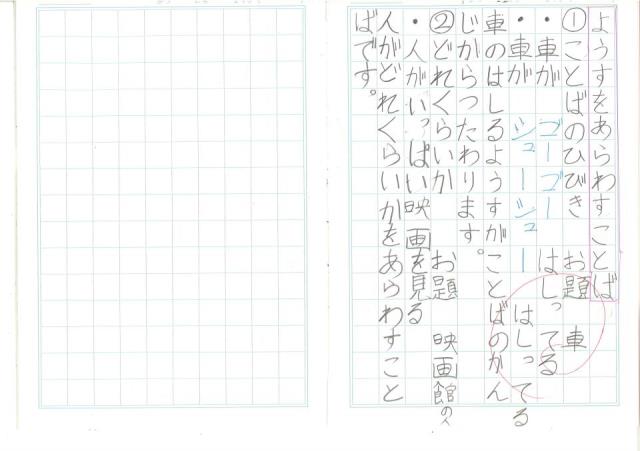 ようすをあらわすことば
①ことばのひびき　お題　車
・車が　ゴーゴー　はしってる
・車が　シューシュー　はしってる
車のはしるようすがことばのかん
じからつたわります。
②どれくらいか　お題　映画館の人
・人がいっぱい映画を見る
人がどれくらいかをあらわすこと
ばです。